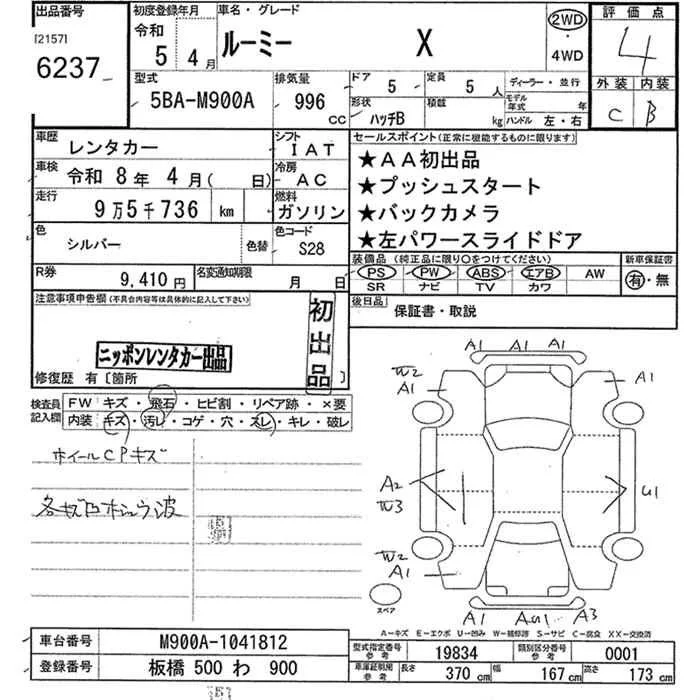 出品番号
[2157]
6237
初度登録年月
令和
5 4月
車名・グレード
ルーミー X
2WD
・
4WD
評価点
4
外装 内装
C B
型式
5BA-M900A
排気量
996 CC
ドア 5
定員 5 人
形状 ハッチB
積載 kg
ディーラー・並行
モデル年式 年
ハンドル 左・右
車歴 レンタカー
シフト IAT
車検 令和 8年 4月( 日)
冷房 AC
走行 9万5千736 km
燃料 ガソリン
色 シルバー 色替
色コード S28
R券 9,410円
名変通知期限 月 日
セールスポイント(正常に機能するものに限ります)
★AA初出品
★プッシュスタート
★バックカメラ
★左パワースライドドア
装備品 (純正品に限り○をつけてください)
PS PW ABS エアB AW
SR ナビ TV カワ
新車保証書
有・無
後日品 保証書・取説
注意事項申告欄(不具合内容等は具体的に記入して下さい)
初出品
ニッポンレンタカー出品
修復歴 有〔箇所 〕
検査員記入欄
FW キズ・飛石・ヒビ割・リペア跡・×要
内装 キズ・汚レ・コゲ・穴・スレ・キレ・破レ
ホイールCPキズ
A1 A1 A1
W2
A1
A1
A2
W3
U1
W2
A1
A1 AU1 A3
スペア
A―キズ E―エクボ U―凹み W―補修跡 S―サビ C―腐食 XX―交換済
車台番号 M900A-1041812
登録番号 板橋 500 わ 900
型式指定番号 参考 19834
類別区分番号 参考 0001
車庫証明用 参考 長さ 370 cm 幅 167 cm 高さ 173 cm